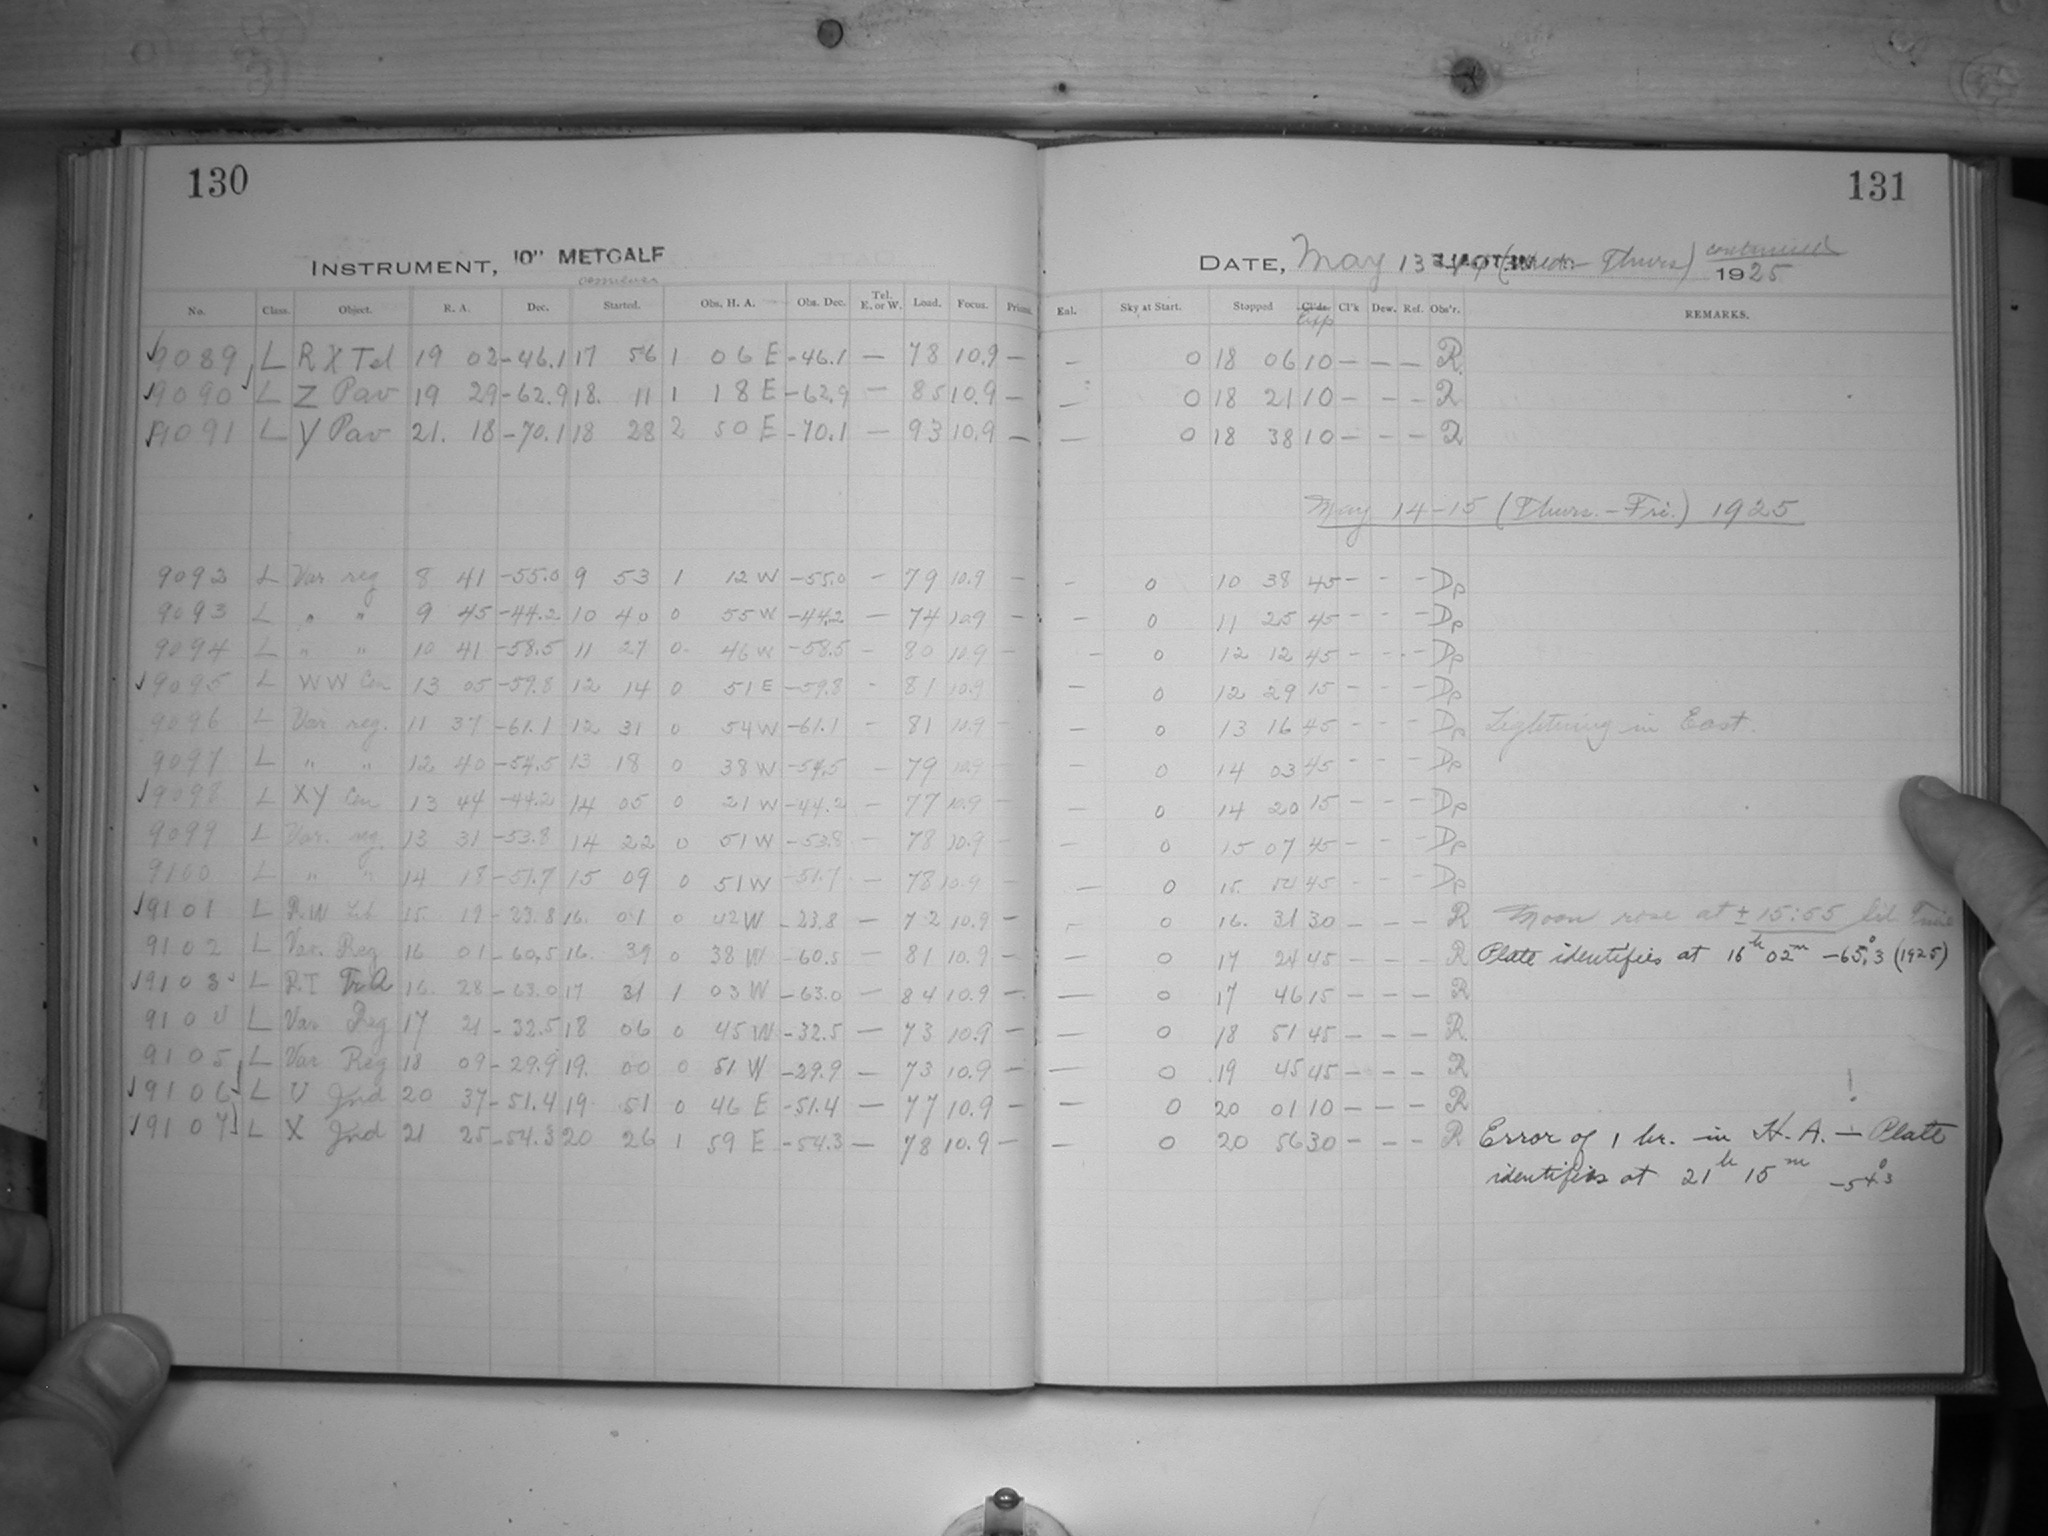 130
131
INSTRUMENT, 10" METCALF
DATE, May 13 (Wed.- Thurs) continued 1925
No. Class. Object. R. A. Dec. Started. Obs. H. A. Obs. Dec. Tel. E. or W. Load. Focus. Prism. Eal. Sky at Start. Stopped Cl'ds. Exp Cl'k Dew. Ref. Obs'r. REMARKS.
9089 L RX Tel 19 02 -46.1 17 56 1 06 E -46.1 — 78 10.9 — — 0 18 06 10 — — — R
9090 L Z Pav 19 29 -62.9 18. 11 1 18 E -62.9 — 85 10.9 — — 0 18 21 10 — — — R
9091 L Y Pav 21. 18 -70.1 18 28 2 50 E -70.1 — 93 10.9 — — 0 18 38 10 — — — R
May 14-15 (Thurs.-Fri.) 1925
9092 L Var reg 8 41 -55.0 9 53 1 12 W -55.0 — 79 10.9 — — 0 10 38 45 — — — Dp
9093 L " " 9 45 -44.2 10 40 0 55 W -44.2 — 74 10.9 — — 0 11 25 45 — — — Dp
9094 L " " 10 41 -58.5 11 27 0 46 W -58.5 — 80 10.9 — — 0 12 12 45 — — — Dp
9095 L WW Cen 13 05 -59.8 12 14 0 51 E -59.8 — 81 10.9 — 0 12 29 15 — — — Dp
9096 L Var reg. 11 37 -61.1 12 31 0 54 W -61.1 — 81 10.9 — — 0 13 16 45 — — — Dp Lightning in East.
9097 L " " 12 40 -54.5 13 18 0 38 W -54.5 — 79 10.9 — — 0 14 03 45 — — — Dp
9098 L XY Cen 13 44 -44.2 14 05 0 21 W -44.2 — 77 10.9 — — 0 14 20 15 — — — Dp
9099 L Var. reg. 13 31 -53.8 14 22 0 51 W -53.8 — 78 10.9 — — 0 15 07 45 — — — Dp
9100 L " " 14 18 -51.7 15 09 0 51 W -51.7 — 78 10.9 — — 0 15. 54 45 — — — Dp
9101 L RW Lib 15. 19 -23.8 16. 01 0 42 W -23.8 — 72 10.9 — — 0 16. 31 30 — — — R Moon rose at ± 15:55 Sid Time
9102 L Var. Reg 16 01 -60.5 16. 39 0 38 W -60.5 — 81 10.9 — — 0 17 24 45 — — — R Plate identifies at 16h 02m -65°.3 (1925)
9103 L RT TrA 16. 28 -63.0 17 31 1 03 W -63.0 — 84 10.9 — — 0 17 46 15 — — — R
9104 L Var Reg 17 21 -32.5 18 06 0 45 W -32.5 — 73 10.9 — — 0 18 51 45 — — — R
9105 L Var Reg 18 09 -29.9 19. 00 0 51 W -29.9 — 73 10.9 — — 0 19 45 45 — — — R
9106 L U Ind 20 37 -51.4 19 51 0 46 E -51.4 — 77 10.9 — — 0 20 01 10 — — — R !
9107 L X Ind 21 25 -54.3 20 26 1 59 E -54.3 — 78 10.9 — — 0 20 56 30 — — — R Error of 1 hr. in H. A. — Plate
identifies at 21h 15m -54°.3